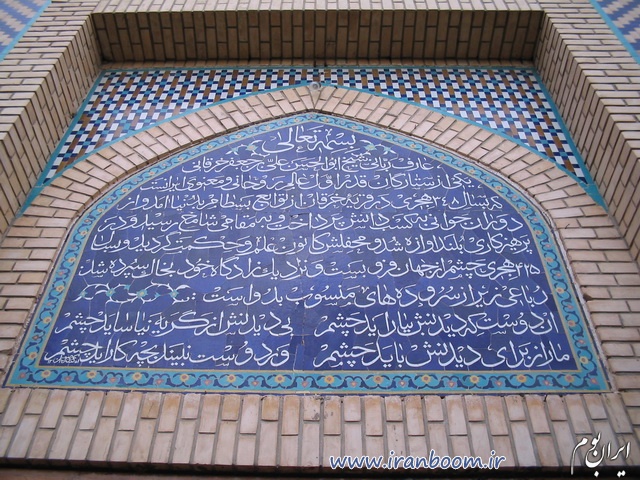 بسمه تعالی
عارف ربانی شیخ ابوالحسن علی بن جعفر خرقانی
یکی از ستارگان قدر اول عالم روحانی و معنوی ایرانست
که بسال ۳۴۸ هجری در قریه خرقان از توابع بسطام قدم بدنیا نهاد و از
دوران جوانی بکسب دانش پرداخت به مقامی شامخ رسید و در
پرهیزکاری بلندآوازه شد و محفلش کانون علم و حکمت گردید و بسال
۴۲۵ هجری چشم از جهان فروبست و نزدیک زادگاه خود بخاک سپرده شد
رباعی زیر از سروده های منسوب بدوست
آن دوست که دیدنش بیاراید چشم بی دیدنش از گریه نیاساید چشم
ما را ز برای دیدنش باید چشم ور دوست نبیند بچه کار آید چشم
www.iranboom.ir
ایران بوم